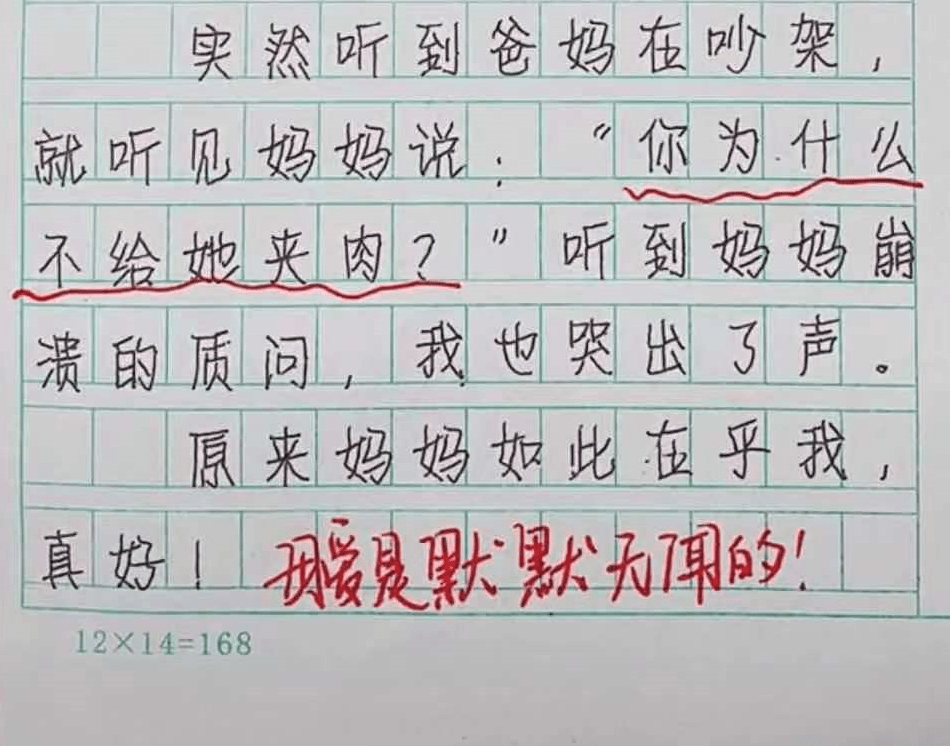 突然听到爸妈在吵架,
就听见妈妈说:“你为什么
不给她夹肉?”听到妈妈崩
溃的质问,我也哭出了声。
原来妈妈如此在乎我,
真好!母爱是默默无闻的!
12×14=168